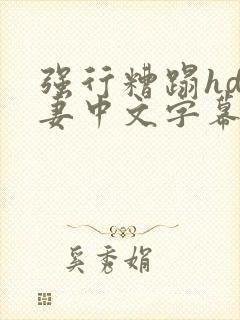 强行糟蹋hd
妻中文字幕
奚秀娟